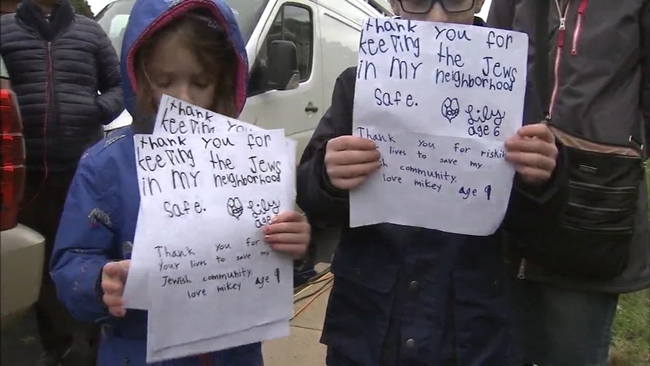 thank
keeping
thank you for
keeping the Jews
in my neighborhood
safe. Lily
age 6
Thank you for
your lives to save my
Jewish community.
love mikey age 9
thank you for
keeping the Jews
in my neighborhood
safe. Lily
age 6
Thank you for riskin
lives to save my
Jewish community.
love mikey age 9